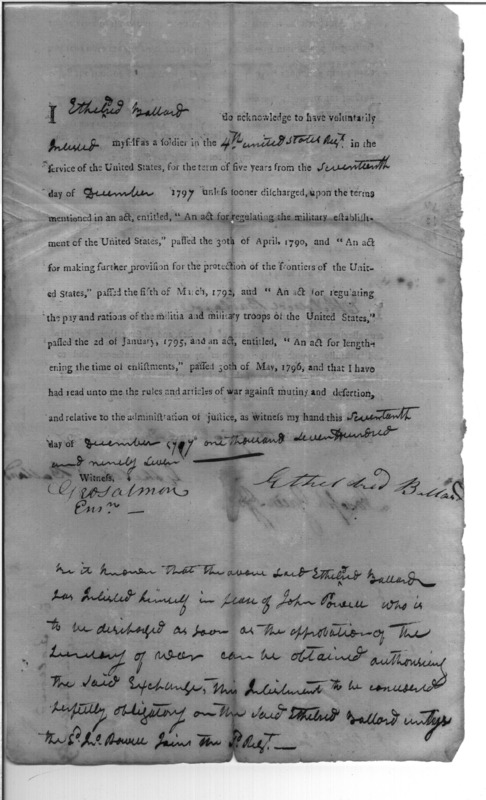 I Etheldred Ballard do acknowledge to have voluntarily
Inlisted myself as a soldier in the 4th united States Regt. in the
service of the United States, for the term of five years from the Seventeenth
day of December 1797 unless sooner discharged, upon the terms
mentioned in an act, entitled, "An act for regulating the military establish-
ment of the United States," passed the 30th of April, 1790, and "An act
for making further provision for the protection of the frontiers of the Unit-
ed States," passed the fifth of March, 1792, and "An act for regulating
the pay and rations of the militia and military troops of the United States,"
passed the 2d of January, 1795, and an act, entitled, "An act for length-
ening the time of enlistments," passed 30th of May, 1796, and that I have
had read unto me the rules and articles of war against mutiny and desertion,
and relative to the administration of justice, as witness my hand this Seventeenth
day of December 1797 one thousand Seven Hundred
and ninety Seven
Witness,
Geo Salmon
Ensn.
Etheldred Ballard
Be it known that the above said Etheldred Ballard
has Inlisted himself in place of John Powell who is
to be discharged as soon as the approbation of the
Secretary of war can be obtained authorising
the said Exchange, this Inlistment to be considered
perfectly obligatory on the said Etheldred Ballard
the Sd. Jno. Powell Joins the Regt.